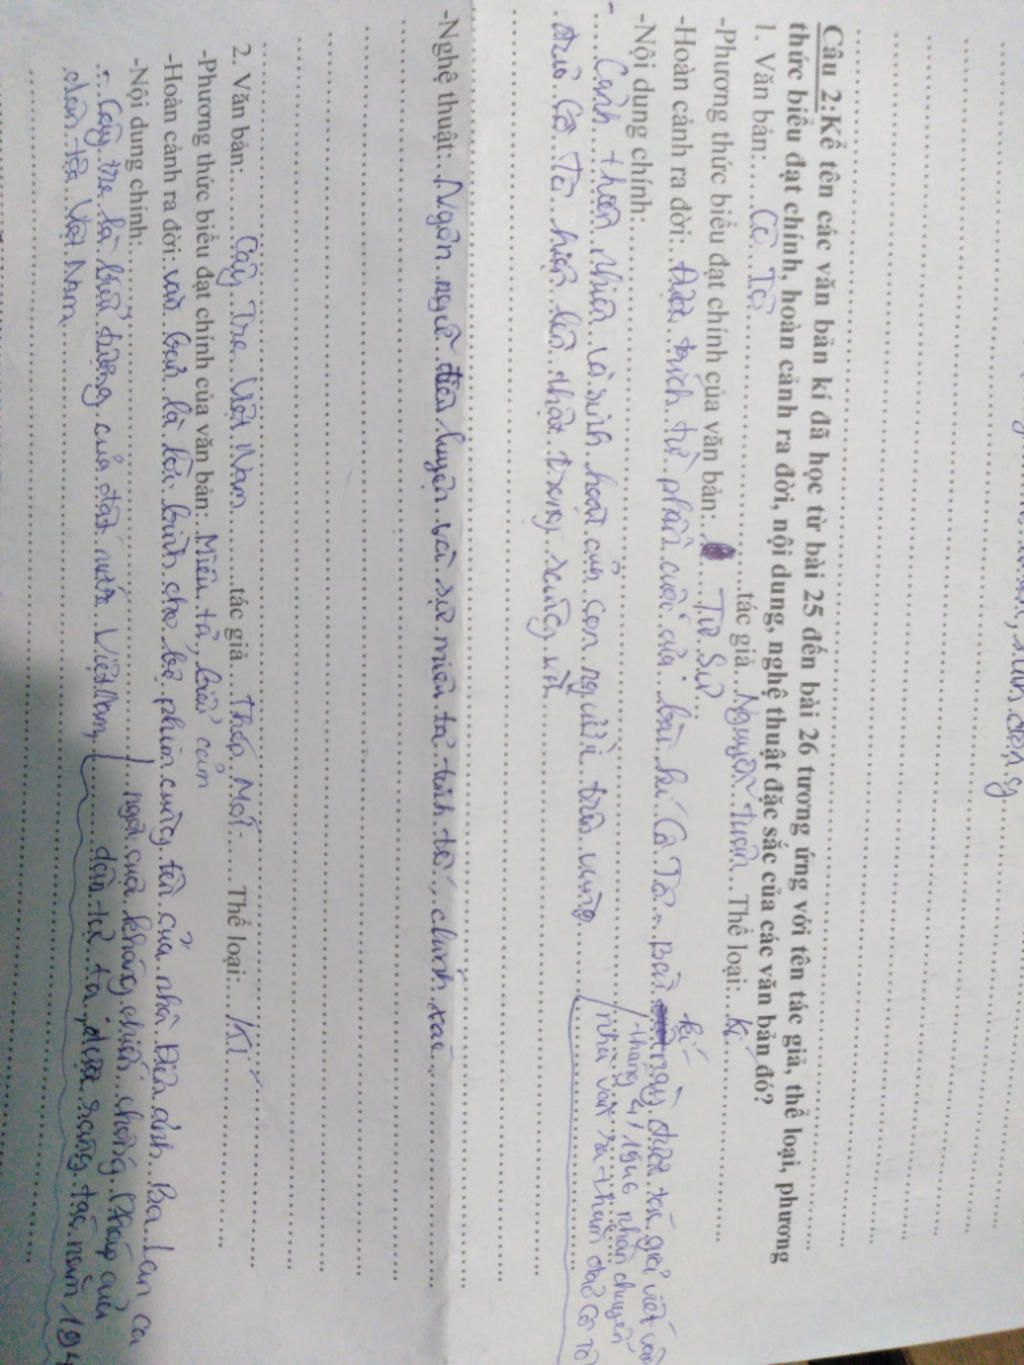 Câu 2: Kể tên các văn bản kí đã học từ bài 25 đến bài 26 tương ứng với tên tác giả, thể loại, phương
thức biểu đạt chính, hoàn cảnh ra đời, nội dung, nghệ thuật đặc sắc của các văn bản đó?
1. Văn bản: Cô Tô tác giả Nguyễn Tuân Thể loại: Kí
-Phương thức biểu đạt chính của văn bản: Tự Sự
-Hoàn cảnh ra đời: Được trích từ phần cuối của bài kí Cô Tô. Bài kí này được tác giả viết vào
tháng 4/1946 nhân chuyến
-Nội dung chính:
nhà văn ra thăm đảo Cô Tô
- Cảnh thiên nhiên và sinh hoạt của con người trên vùng
đảo Cô Tô hiện lên thật trong sáng và
-Nghệ thuật: Ngôn ngữ điêu luyện và sự miêu tả tinh tế, chính xác
2. Văn bản: Cây Tre Việt Nam tác giả Thép Mới Thể loại: Kí
-Phương thức biểu đạt chính của văn bản: Miêu tả, biểu cảm
-Hoàn cảnh ra đời: văn bản là lời bình cho bộ phim cùng tên của nhà điện ảnh Ba Lan ca
-Nội dung chính: ngợi cuộc kháng chiến chống Pháp của
- Cây tre là biểu tượng của đất nước Việt Nam, dân tộc ta, được sáng tác năm
dân tộc Việt Nam